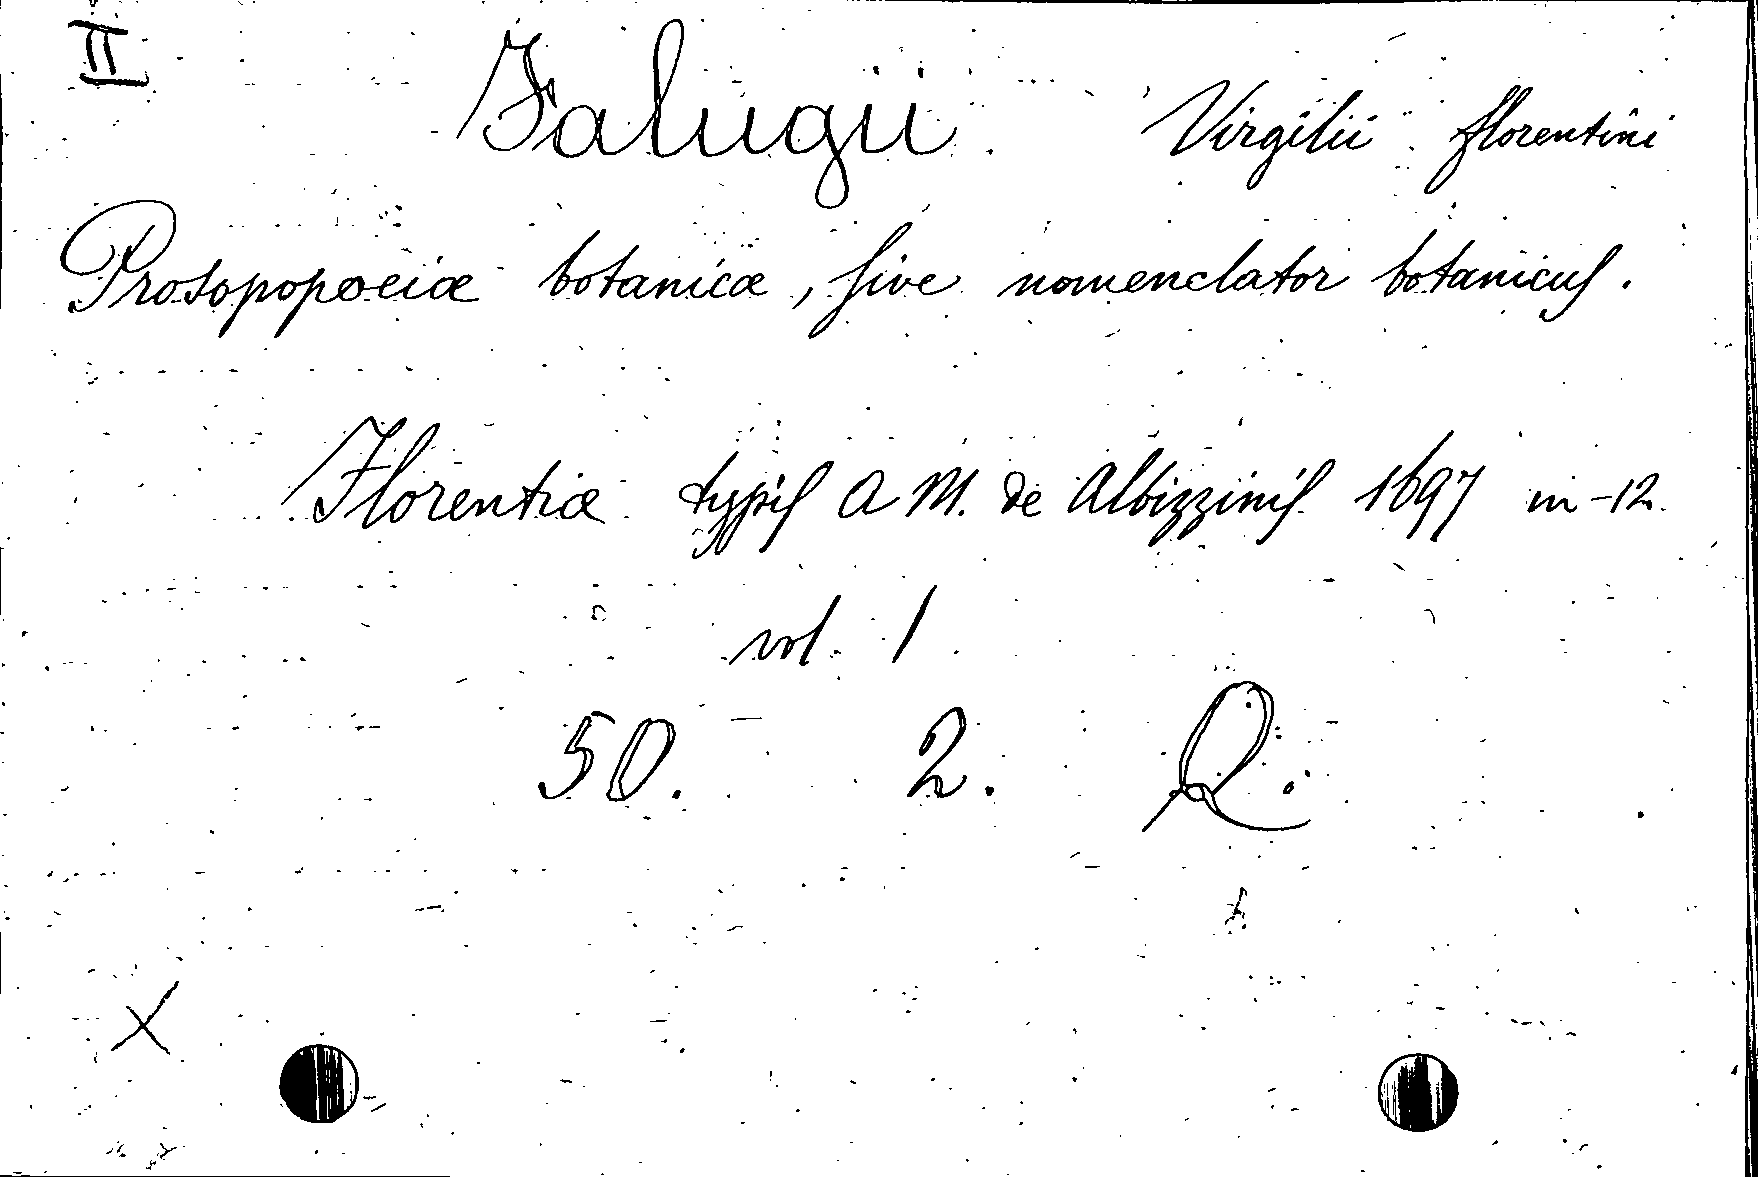 II
Falugii Virgilii florentini
Prosopopoeiæ botanicæ, sive nomenclator botanicus.
Florentiæ typis A M. de Albizzinis 1697 in-12
vol. 1
50. 2. Q.
X